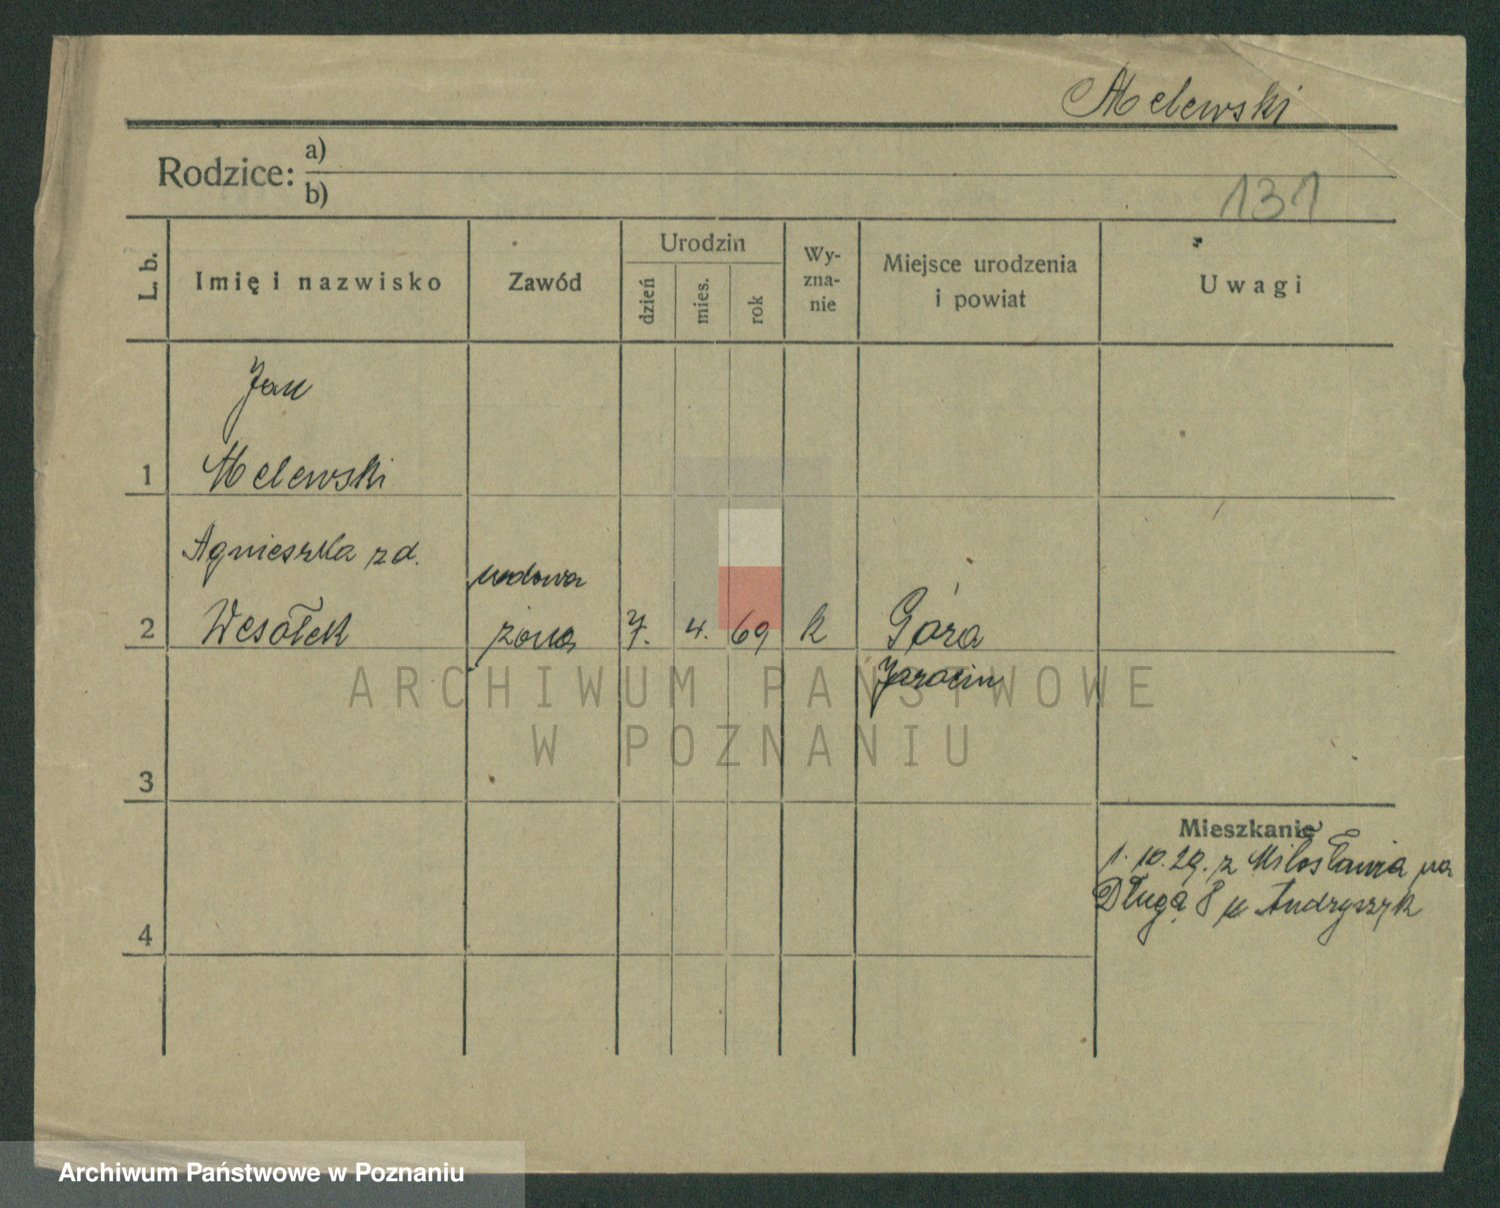 Melewski
Rodzice: a)
b)
131
L. b.
Imię i nazwisko
Zawód
Urodzin
dzień
mies.
rok
Wy-
zna-
nie
Miejsce urodzenia
i powiat
Uwagi
Jan
1 Melewski
Agnieszka zd.
wdowa
2 Wesołek żona 7. 4. 69 k Góra
Jarocin
ARCHIWUM PAŃSTWOWE
W POZNANIU
3
Mieszkanie
1. 10. 29. z Miłosławia na
Długą 8 u Andryszyk
4
Archiwum Państwowe w Poznaniu